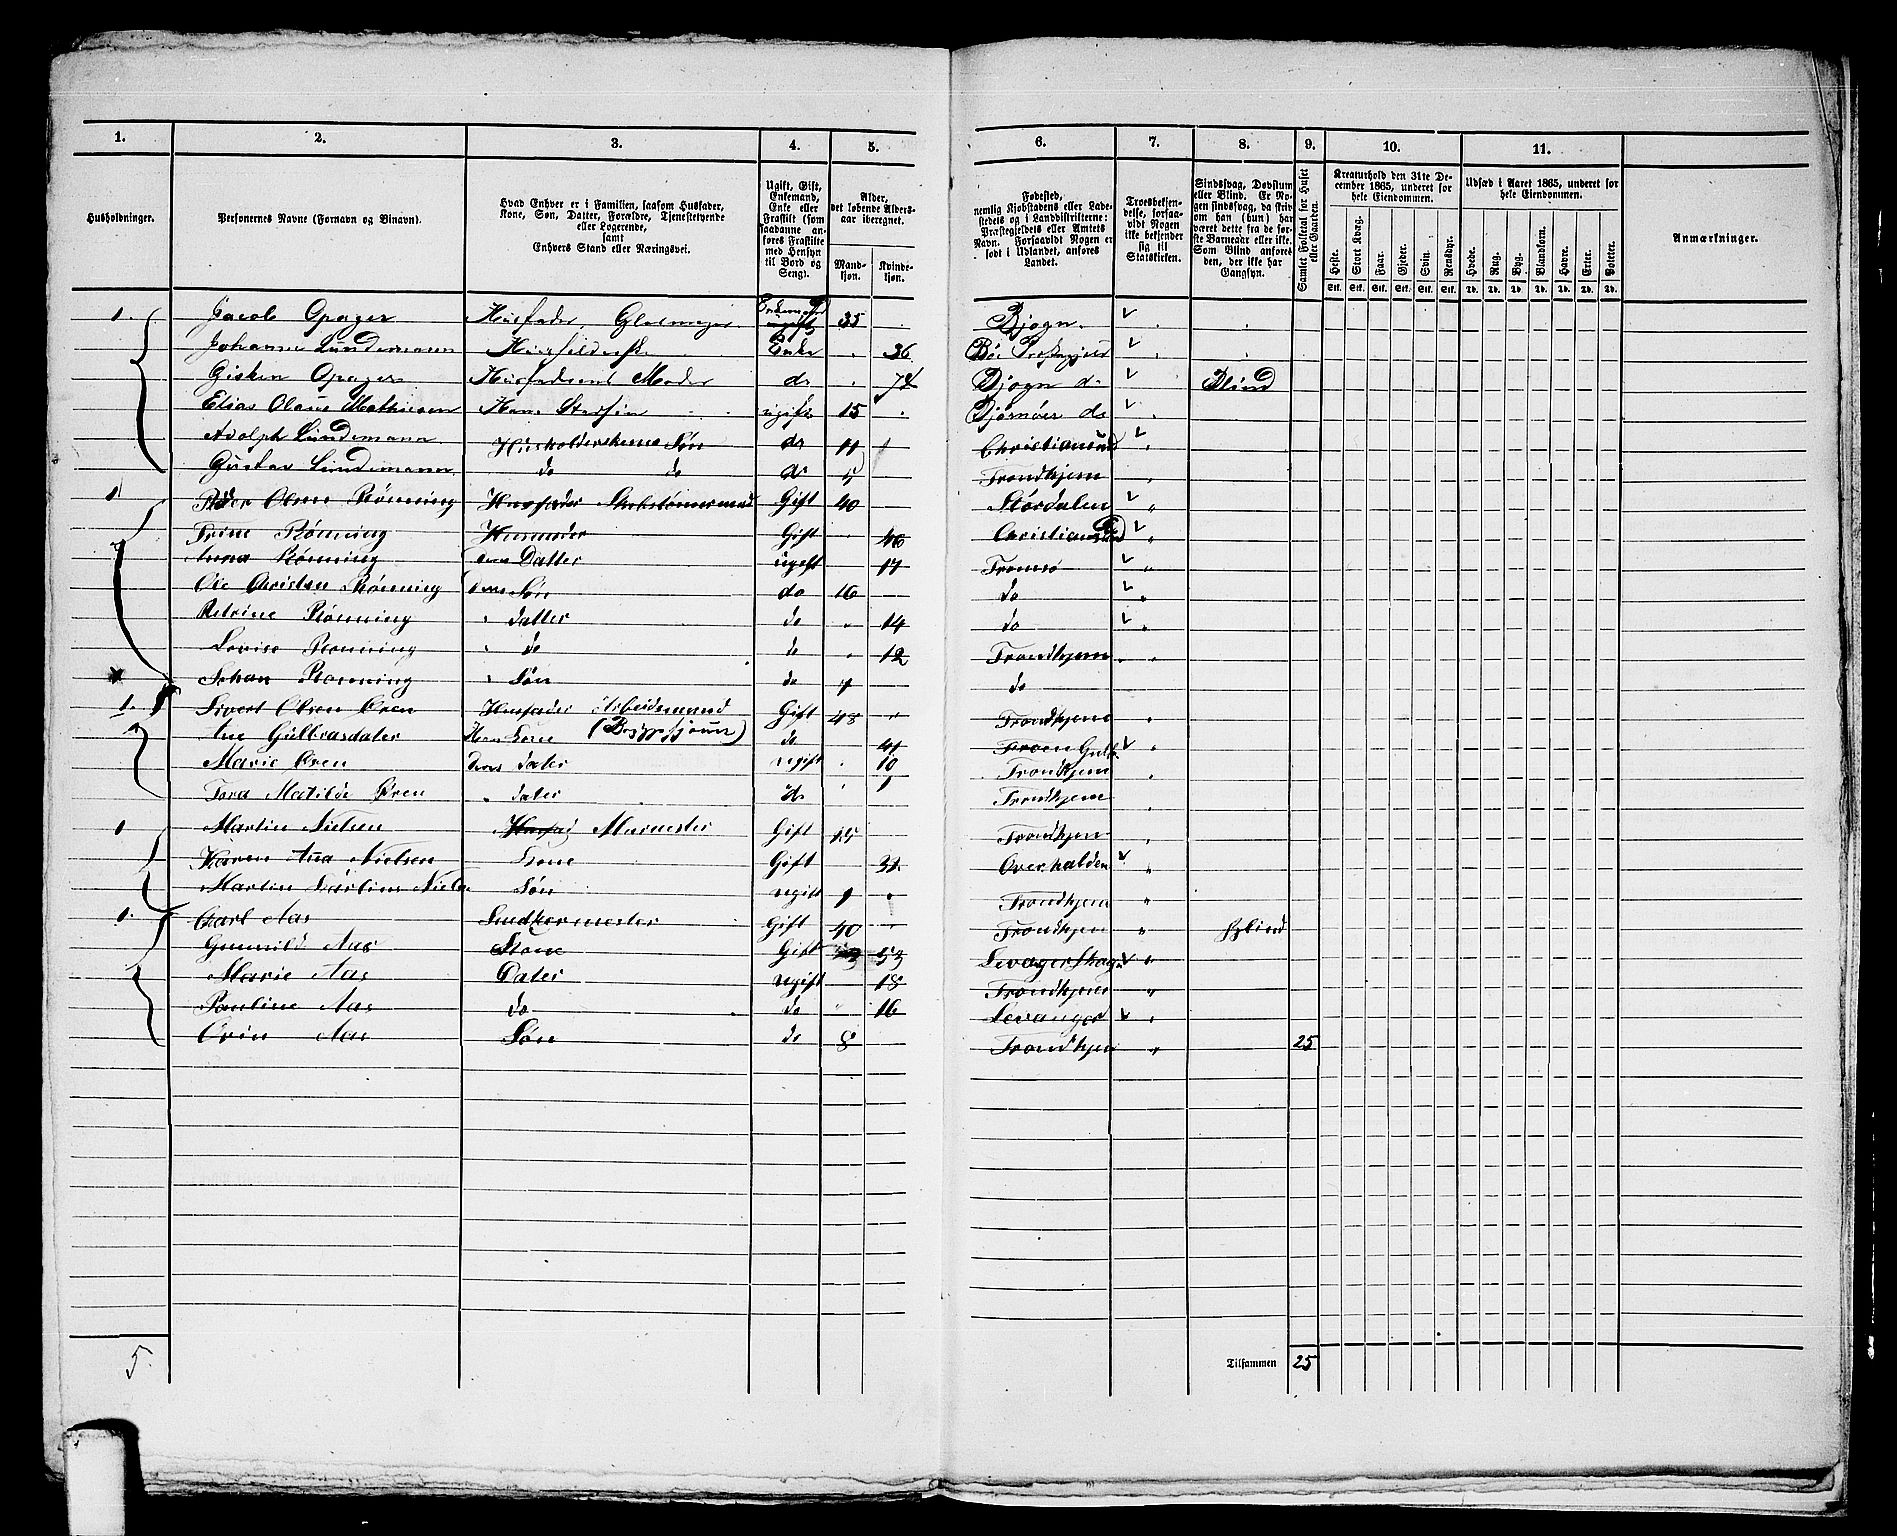 1. 2. 3. 4. 5. 6. 7. 8. 9. 10. 11.
Husholdninger.
Personernes Navne (Fornavn og Binavn).
Hvad Enhver er i Familien, saasom Husfader,
Kone, Søn, Datter, Forældre, Tjenestetyende
eller Logerende,
samt
Enhvers Stand eller Næringsvei.
Ugift, Gift,
Enkemand,
Enke eller
Fraskilt (som
saadanne an-
føres Fraskilte
med Hensyn
til Bord og
Seng).
Alder,
det løbende Alders-
aar iberegnet.
Mand-
kjøn.
Kvinde-
kjøn.
Fødested,
nemlig Kjøbstadens eller Lade-
stedets og i Landdistrikterne:
Præstegjeldets eller Amtets
Navn. Forsaavidt Nogen er
født i Udlandet, anføres
Landet.
Troesbekjen-
delse, forsaa-
vidt Nogen
ikke bekjender
sig til
Statskirken.
Sindssvag, Døvstum
eller Blind. Er No-
gen sindssvag, da skriv
om han (hun) har
været dette fra de før-
ste Barneaar eller ikke.
Som Blind anføres
den, der ikke har
Gangsyn.
Samlet Folketal for Huset
eller Gaarden.
Kreaturhold den 31te De-
cember 1865, underet for
hele Eiendommen.
Heste. Stort Kvæg. Faar. Gjeder. Svin. Rensdyr.
Stk. Stk. Stk. Stk. Stk. Stk.
Udsæd i Aaret 1865, underet for
hele Eiendommen.
Hvede. Rug. Byg. Blandkorn. Havre. Erter. Poteter.
Td. Td. Td. Td. Td. Td. Td.
Anmærkninger.
1. Jacob Opager Husfader, Glasmager 35 Bjogn
Johanna Lundemann Enke 36 Bø
Gisken Opager Husfaderens Moder do 72 Bjogn do Blind
Elias Olaus Mathiesen Hans Stedsøn ugift 15 Bjørnøer do
Adolph Lundemann Husholderskens Søn do 11 Christiansund
Gustav Lundemann do do do 5 Trondhjem
1 Peder Olsen Rønning Husfader Gift 40 Størdalen
Trine Rønning Husmoder Gift 40 Christiansund
Anna Rønning Datter ugift 17 Tromsø
Ole Christian Rønning Søn do 16 do
Petrine Rønning Datter do 14 do
Lovise Rønning do do 12 Trondhjem
Johan Rønning Søn do 7 do
1. Sivert Olsen Øren Husfader Arbeidsmand Gift 48 Trondhjem
Ane Gulbrasdater Hans Kone (Bryggesjouer) do 41
Marie Øren deres Dater ugift 10 Trondhjem
Tora Matilde Øren Dater do 1 Trondhjem
1 Martin Nielsen Murmester Gift Trondhjem
Karen Ana Nielsen Kone Gift 31 Overhalden
Martin Nielsen Søn ugift 1 Trondhjem
1. Carl Aas Snedkermester Gift 40 Trondhjem Blind
Gunnild Aas Kone Gift 53 Levager Skogn
Marie Aas Dater ugift 18 Trondhjem
Pauline Aas do do 16 Levanger
Ovin Aas Søn do 8 Trondhjem 25
5. Tilsammen 25